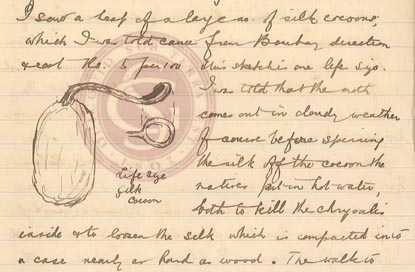 I saw a heap of a large no. of silk cocoons,
which I was told came from Bombay direction
& cost Rs. 5 per 100 this sketch is one life size.
I was told that the moth
comes out in cloudy weather
of course before spinning
the silk off the cocoon the
natives put in hot water,
both to kill the chrysalis
inside & to loosen the silk which is compacted into
a case nearly as hard as wood. The walk to
life size
silk
cocoon